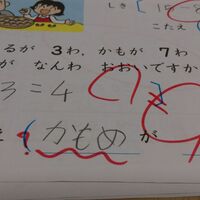 しき
15-8
こたえ
るが 3わ、かもが 7わ
が なんわ おおいですか
3=4
と (かもめ が